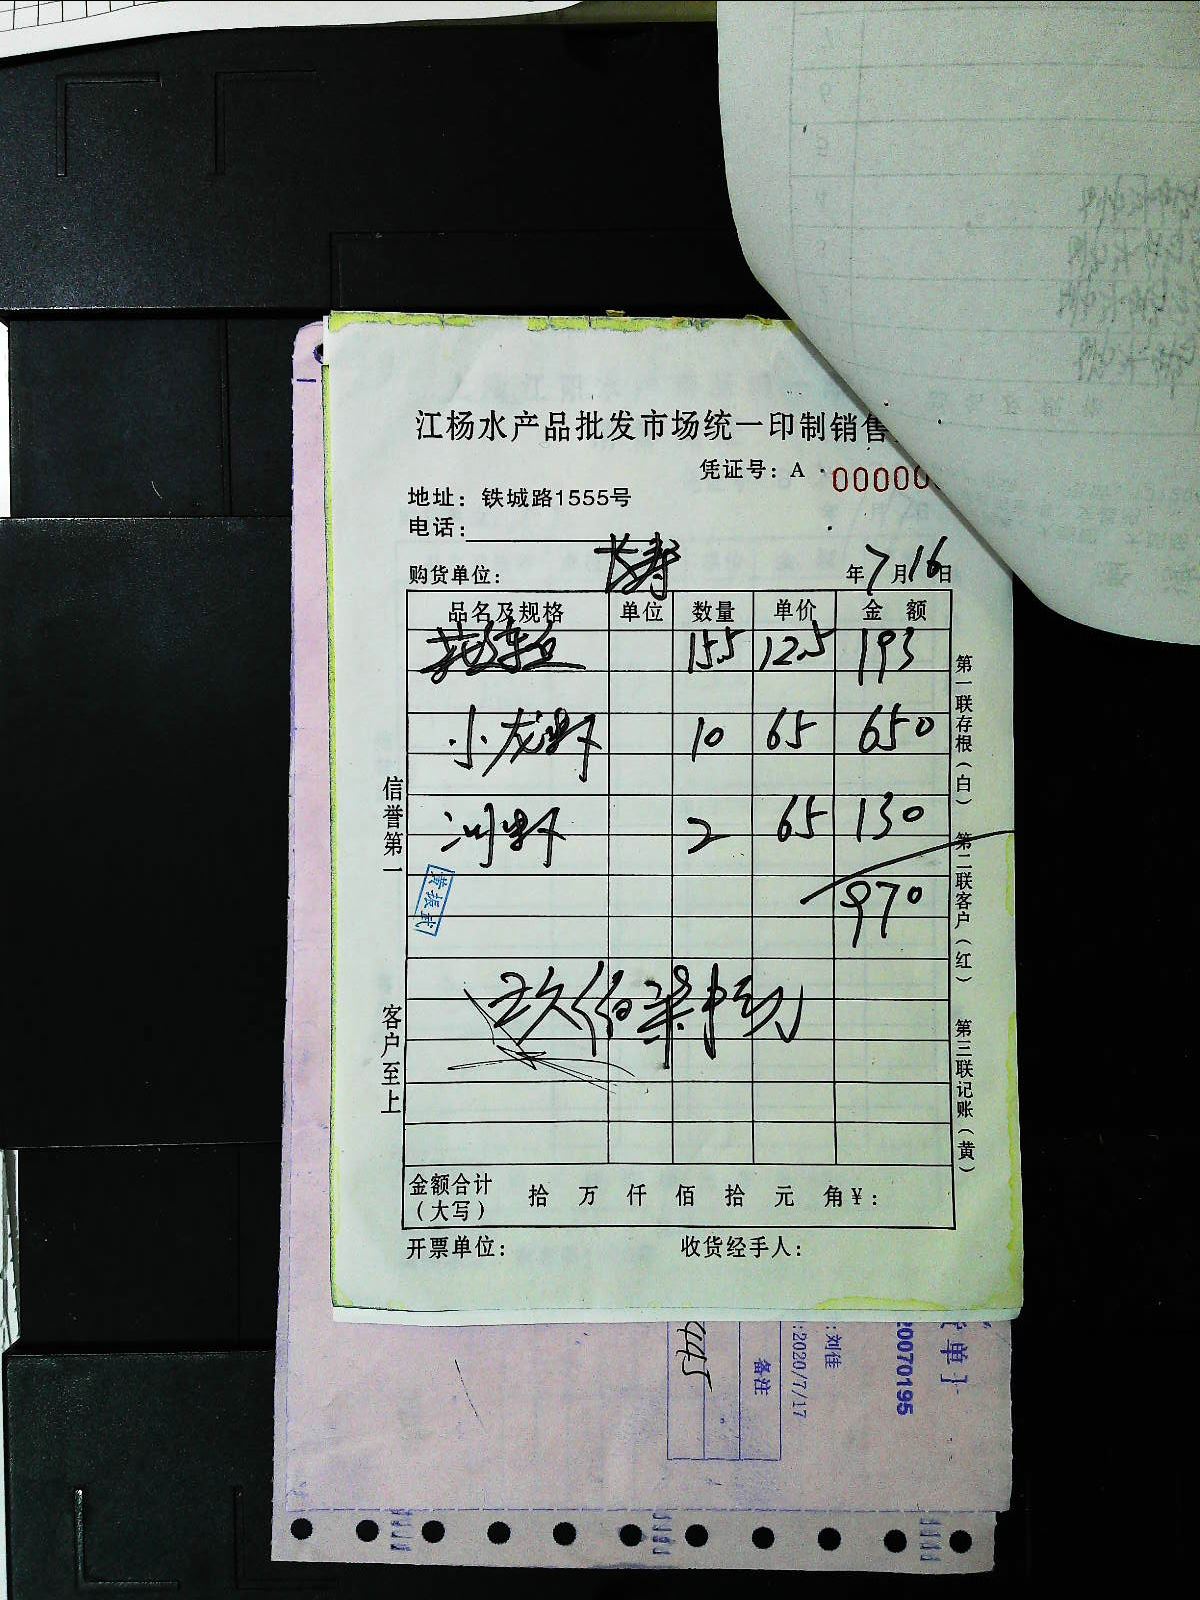 江杨水产品批发市场统一印制销售
凭证号：A 00000
地址：铁城路1555号
电话：
购货单位： 长寿 年7月16日
品名及规格 单位 数量 单价 金额
花鲢鱼 15.5 12.5 193
小龙虾 10 65 650
河虾 2 65 130
970
玖佰柒十元
金额合计（大写） 拾 万 仟 佰 拾 元 角￥：
开票单位： 收货经手人：
信誉第一
客户至上
黄振武
第一联存根（白）
第二联客户（红）
第三联记账（黄）
20070195
:刘佳
:2020/7/17
备注